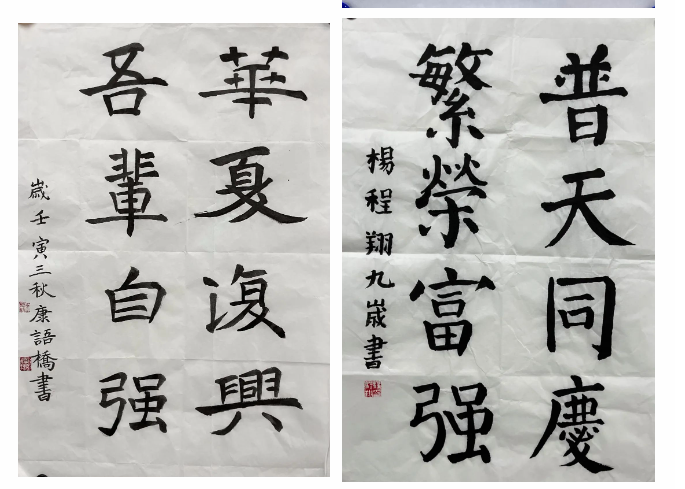 華夏復興
吾輩自强
歲壬寅三秋康語橋書
普天同慶
繁榮富强
楊程翔九歲書